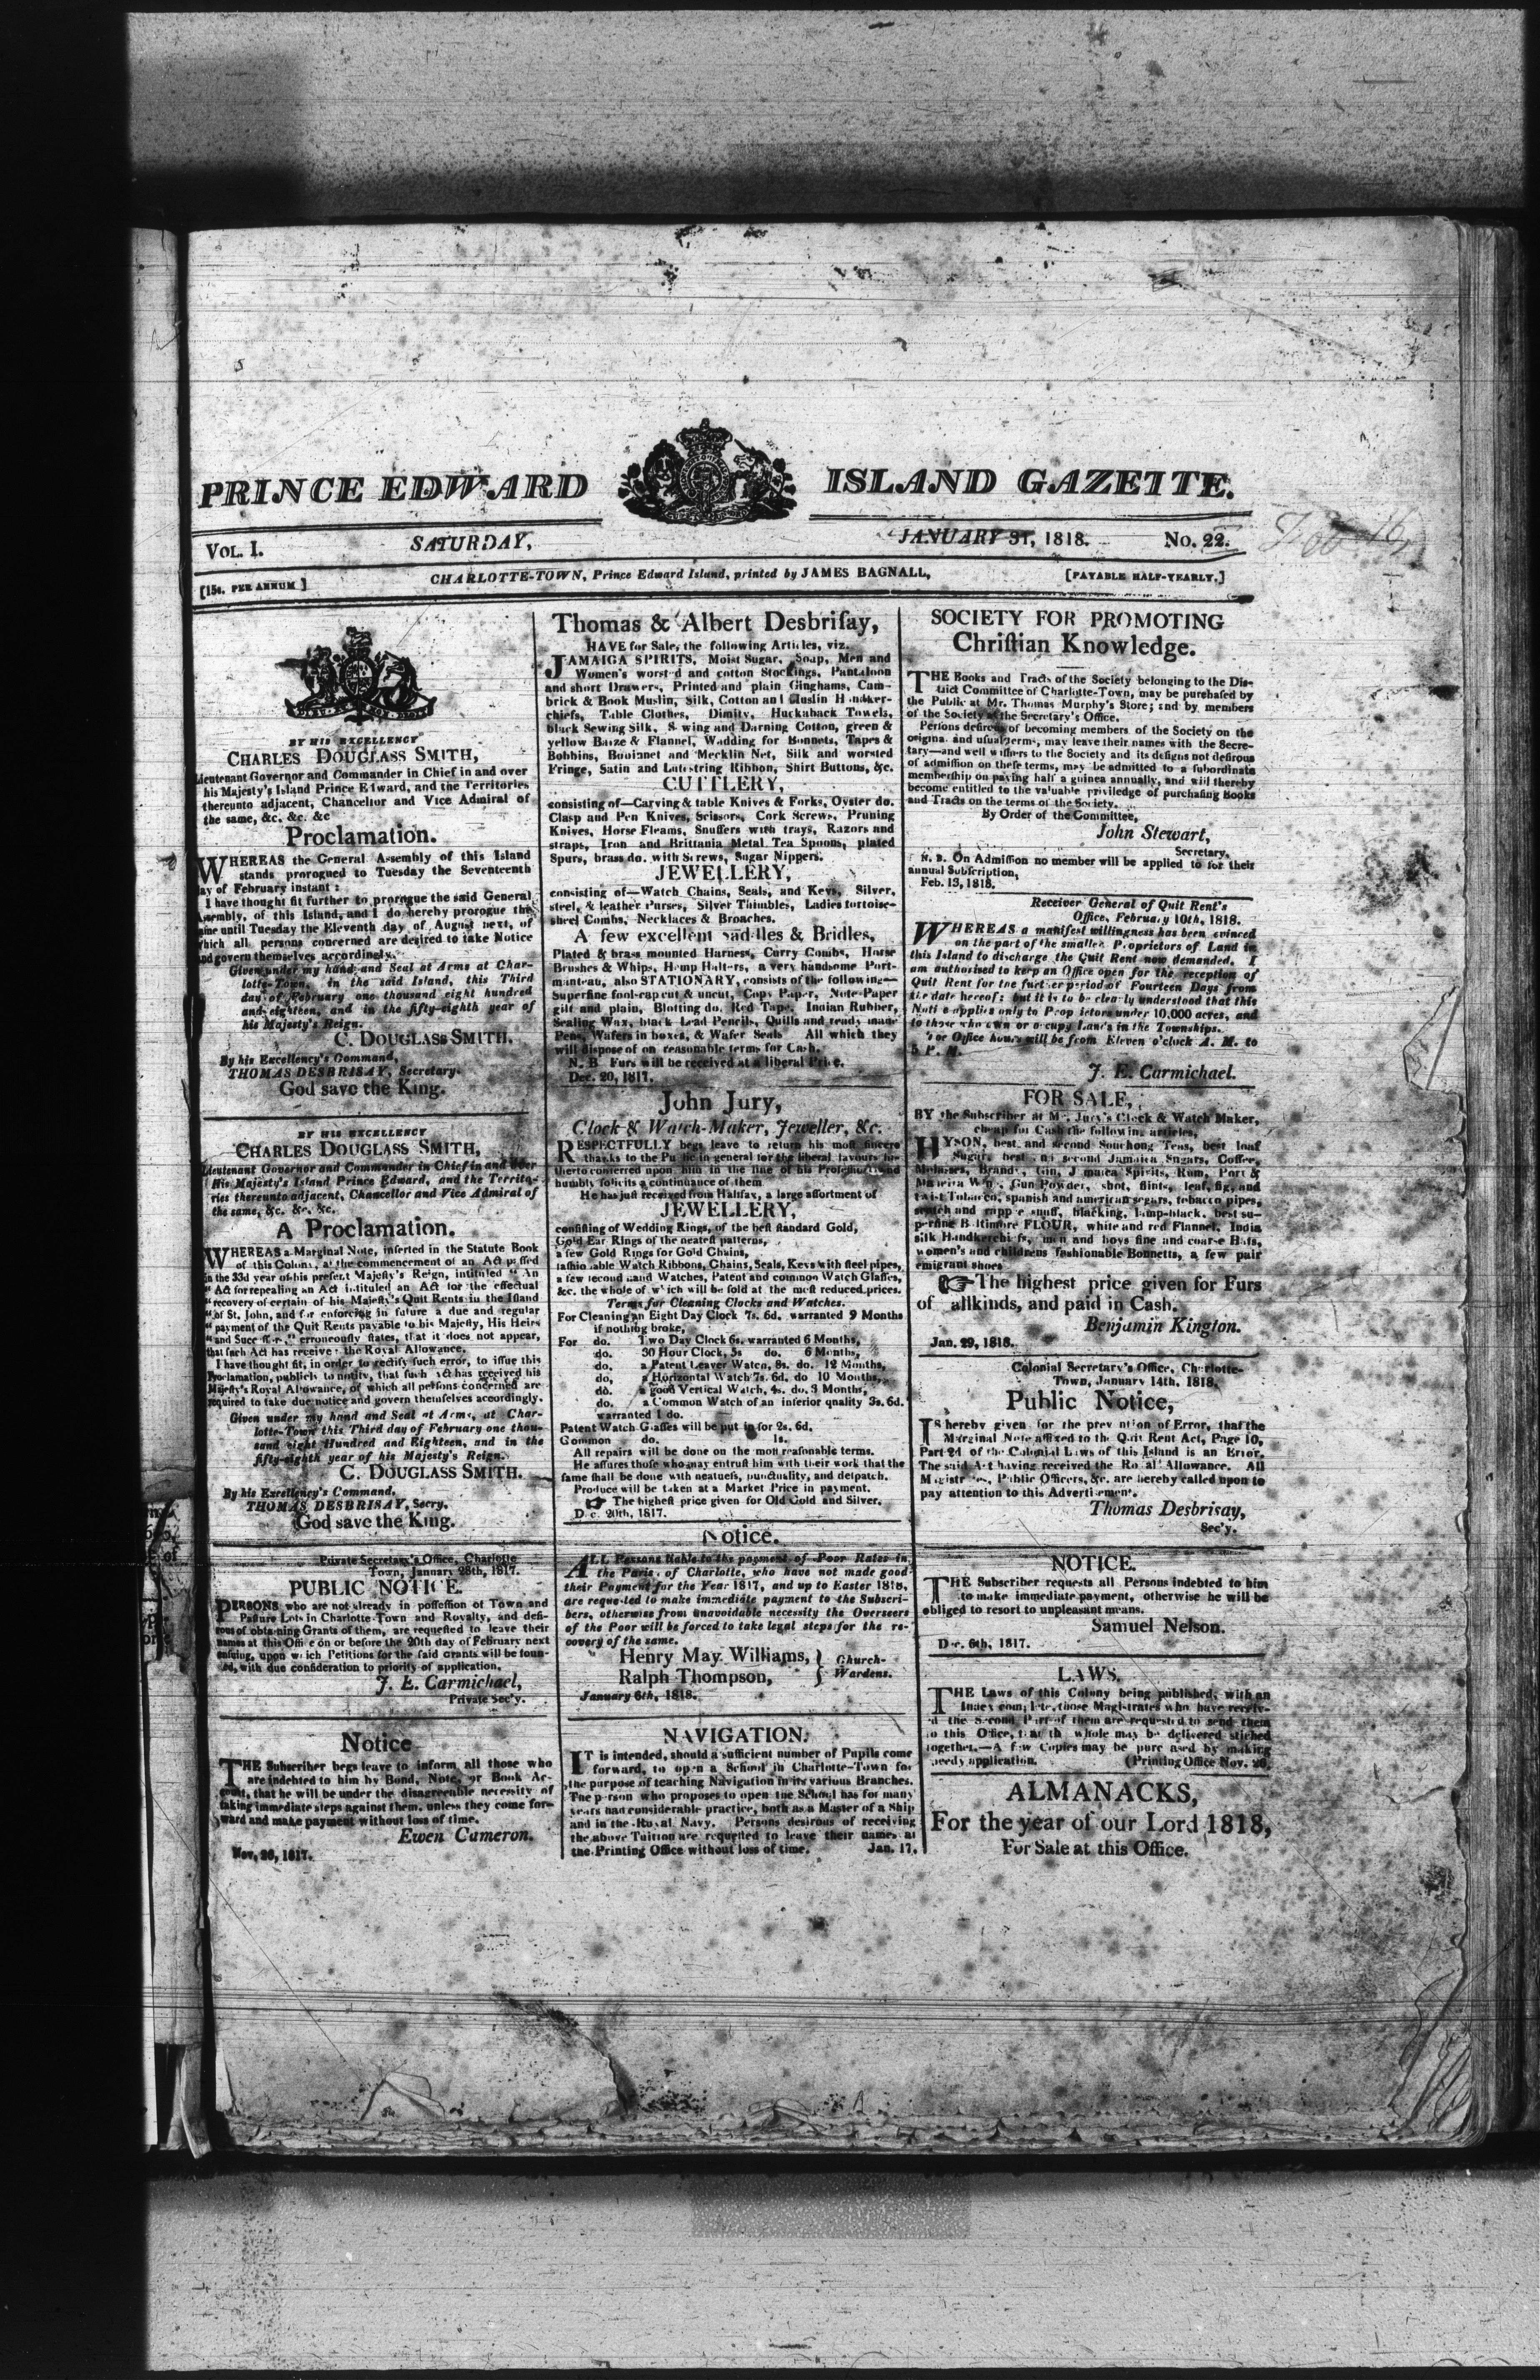 PRINCE EDWARD ISLAND GAZETTE.
VOL. I. SATURDAY, JANUARY 31, 1818. No. 22.
[15s. PER ANNUM] CHARLOTTE-TOWN, Prince Edward Island, printed by JAMES BAGNALL, [PAYABLE HALF-YEARLY.]
BY HIS EXCELLENCY
CHARLES DOUGLASS SMITH,
Lieutenant Governor and Commander in Chief in and over
his Majesty's Island Prince Edward, and the Territories
thereunto adjacent, Chancellor and Vice Admiral of
the same, &c. &c. &c
Proclamation.
WHEREAS the General Assembly of this Island
stands prorogued to Tuesday the Seventeenth
day of February instant:
I have thought fit further to prorogue the said General
Assembly, of this Island, and I do hereby prorogue the
same until Tuesday the Eleventh day of August next, of
which all persons concerned are desired to take Notice
and govern themselves accordingly.
Given under my hand and Seal at Arms at Char-
lotte-Town, in the said Island, this Third
day of February one thousand eight hundred
and eighteen, and in the fifty-eighth year of
his Majesty's Reign.
C. DOUGLASS SMITH.
By his Excellency's Command,
THOMAS DESBRISAY, Secretary.
God save the King.
BY HIS EXCELLENCY
CHARLES DOUGLASS SMITH,
Lieutenant Governor and Commander in Chief in and over
His Majesty's Island Prince Edward, and the Territo-
ries thereunto adjacent, Chancellor and Vice Admiral of
the same, &c. &c. &c.
A Proclamation.
WHEREAS a Marginal Note, inserted in the Statute Book
of this Colony, at the commencement of an Act passed
in the 33d year of his present Majesty's Reign, intituled "An
"Act for repealing an Act intituled an Act for the effectual
"recovery of certain of his Majesty's Quit Rents in the Island
"of St. John, and for enforcing in future a due and regular
"payment of the Quit Rents payable to his Majesty, His Heirs
"and Successors," erroneously states, that it does not appear,
that such Act has received the Royal Allowance.
I have thought fit, in order to rectify such error, to issue this
Proclamation, publicly to notify, that such Act has received his
Majesty's Royal Allowance, of which all persons concerned are
required to take due notice and govern themselves accordingly.
Given under my hand and Seal at Arms, at Char-
lotte-Town this Third day of February one thou-
sand eight Hundred and Eighteen, and in the
fifty-eighth year of his Majesty's Reign.
C. DOUGLASS SMITH.
By his Excellency's Command,
THOMAS DESBRISAY, Secry.
God save the King.
Private Secretary's Office, Charlotte
Town, January 28th, 1817.
PUBLIC NOTICE.
PERSONS who are not already in possession of Town and
Pasture Lots in Charlotte-Town and Royalty, and desi-
rous of obtaining Grants of them, are requested to leave their
names at this Office on or before the 20th day of February next
ensuing, upon which Petitions for the said Grants will be foun-
ded, with due consideration to priority of application.
J. E. Carmichael,
Private Sec'y.
Notice
THE Subscriber begs leave to inform all those who
are indebted to him by Bond, Note, or Book Ac-
count, that he will be under the disagreeable necessity of
taking immediate steps against them, unless they come for-
ward and make payment without loss of time.
Ewen Cameron.
Nov. 26, 1817.
Thomas & Albert Desbrisay,
HAVE for Sale, the following Articles, viz.
JAMAIGA SPIRITS, Moist Sugar, Soap, Men and
Women's worsted and cotton Stockings, Pantaloon
and short Drawers, Printed and plain Ginghams, Cam-
brick & Book Muslin, Silk, Cotton and Muslin Handker-
chiefs, Table Clothes, Dimity, Huckaback Towels,
black Sewing Silk, Sewing and Darning Cotton, green &
yellow Baize & Flannel, Wadding for Bonnets, Tapes &
Bobbins, Bobinet and Mecklin Net, Silk and worsted
Fringe, Satin and Lutestring Ribbon, Shirt Buttons, &c.
CUTTLERY,
consisting of—Carving & table Knives & Forks, Oyster do.
Clasp and Pen Knives, Scissors, Cork Screws, Pruning
Knives, Horse Fleams, Snuffers with trays, Razors and
straps, Iron and Brittania Metal Tea Spoons, plated
Spurs, brass do. with Screws, Sugar Nippers.
JEWELLERY,
consisting of—Watch Chains, Seals, and Keys, Silver,
steel, & leather Purses, Silver Thimbles, Ladies tortoise-
shell Combs, Necklaces & Broaches.
A few excellent Saddles & Bridles,
Plated & brass mounted Harness, Curry Combs, Horse
Brushes & Whips, Hemp Halters, a very handsome Port-
manteau, also STATIONARY, consists of the following—
Superfine fool-cap cut & uncut, Copy Paper, Note-Paper
gilt and plain, Blotting do. Red Tape, Indian Rubber,
Sealing Wax, black Lead Pencils, Quills and ready made
Pens, Wafers in boxes, & Wafer Seals All which they
will dispose of on reasonable terms for Cash.
N. B Furs will be received at a liberal Price.
Dec. 20, 1817.
John Jury,
Clock & Watch-Maker, Jeweller, &c.
RESPECTFULLY begs leave to return his most sincere
thanks to the Public in general for the liberal favours hi-
therto conferred upon him in the line of his Profession and
humbly solicits a continuance of them
He has just received from Halifax, a large assortment of
JEWELLERY,
consisting of Wedding Rings, of the best standard Gold,
Gold Ear Rings of the neatest patterns,
a few Gold Rings for Gold Chains,
fashionable Watch Ribbons, Chains, Seals, Keys with steel pipes,
a few second hand Watches, Patent and common Watch Glasses,
&c. the whole of which will be sold at the most reduced prices.
Terms for Cleaning Clocks and Watches.
For Cleaning an Eight Day Clock 7s. 6d. warranted 9 Months
if nothing broke,
For do. Two Day Clock 6s. warranted 6 Months,
do. 30 Hour Clock, 5s do. 6 Months,
do. a Patent Leaver Watch, 8s. do. 12 Months,
do, a Horizontal Watch 7s. 6d. do 10 Months,
do. a good Vertical Watch, 4s. do. 3 Months,
do. a Common Watch of an inferior quality 3s. 6d.
warranted 1 do.
Patent Watch Glasses will be put in for 2s. 6d.
Common do. 1s.
All repairs will be done on the most reasonable terms.
He assures those who may entrust him with their work that the
same shall be done with neatness, punctuality, and despatch.
Produce will be taken at a Market Price in payment.
☞ The highest price given for Old Gold and Silver.
Dec. 20th, 1817.
Notice.
ALL Persons liable to the payment of Poor Rates in
the Paris. of Charlotte, who have not made good
their Payment for the Year 1817, and up to Easter 1818,
are requested to make immediate payment to the Subscri-
bers, otherwise from unavoidable necessity the Overseers
of the Poor will be forced to take legal steps for the re-
covery of the same.
Henry May Williams, } Church-
Ralph Thompson, } Wardens.
January 6th, 1818.
NAVIGATION.
IT is intended, should a sufficient number of Pupils come
forward, to open a School in Charlotte-Town for
the purpose of teaching Navigation in its various Branches.
The person who proposes to open the School has for many
years had considerable practice, both as a Master of a Ship
and in the Royal Navy. Persons desirous of receiving
the above Tuition are requested to leave their names at
the Printing Office without loss of time. Jan. 17.
SOCIETY FOR PROMOTING
Christian Knowledge.
THE Books and Tracts of the Society belonging to the Dis-
trict Committee of Charlotte-Town, may be purchased by
the Public at Mr. Thomas Murphy's Store; and by members
of the Society at the Secretary's Office.
Persons desirous of becoming members of the Society on the
original and usual terms, may leave their names with the Secre-
tary—and well wishers to the Society and its designs not desirous
of admission on these terms, may be admitted to a subordinate
membership on paying half a guinea annually, and will thereby
become entitled to the valuable priviledge of purchasing Books
and Tracts on the terms of the Society.
By Order of the Committee,
John Stewart,
Secretary,
N. B. On Admission no member will be applied to for their
annual Subscription,
Feb. 13, 1818.
Receiver General of Quit Rent's
Office, February 10th, 1818.
WHEREAS a manifest willingness has been evinced
on the part of the smaller Proprietors of Land in
this Island to discharge the Quit Rent now demanded. I
am authorised to keep an Office open for the reception of
Quit Rent for the further period of Fourteen Days from
the date hereof: but it is to be clearly understood that this
Notice applies only to Proprietors under 10,000 acres, and
to those who own or occupy Lands in the Townships.
For Office hours will be from Eleven o'clock A. M. to
5 P. M.
J. E. Carmichael.
FOR SALE,
BY the Subscriber at Mr. Jury's Clock & Watch Maker,
cheap for Cash the following articles,
HYSON, best and second Souchong Teas, best loaf
Sugar, best and second Jamaica Sugars, Coffee,
Molasses, Brandy, Gin, Jamaica Spirits, Rum, Port &
Madeira Wine, Gun Powder, shot, flints, leaf, fig, and
twist Tobacco, spanish and american segars, tobacco pipes,
scotch and rappee snuff, blacking, lamp-black, best su-
perfine Baltimore FLOUR, white and red Flannel, India
silk Handkerchiefs, men and boys fine and coarse Hats,
women's and childrens fashionable Bonnetts, a few pair
emigrant shoes
☞ The highest price given for Furs
of allkinds, and paid in Cash.
Benjamin Kington.
Jan. 29, 1818.
Colonial Secretary's Office, Charlotte-
Town, January 14th, 1818.
Public Notice,
IS hereby given for the prevention of Error, that the
Marginal Note affixed to the Quit Rent Act, Page 10,
Part 2d of the Colonial Laws of this Island is an Error,
The said Act having received the Royal Allowance. All
Magistrates, Public Officers, &c. are hereby called upon to
pay attention to this Advertisement.
Thomas Desbrisay,
Sec'y.
NOTICE.
THE Subscriber requests all Persons indebted to him
to make immediate payment, otherwise he will be
obliged to resort to unpleasant means.
Samuel Nelson.
Dec. 6th, 1817.
LAWS.
THE Laws of this Colony being published, with an
Index complete, those Magistrates who have receiv-
ed the Second Part of them are requested to send them
to this Office, that the whole may be delivered stiched
together.—A few Copies may be purchased by making
speedy application. (Printing Office Nov. 26.
ALMANACKS,
For the year of our Lord 1818,
For Sale at this Office.